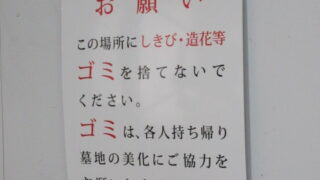 お願い
この場所にしきび・造花等
ゴミを捨てないで
ください。
ゴミは、各人持ち帰り
墓地の美化にご協力を